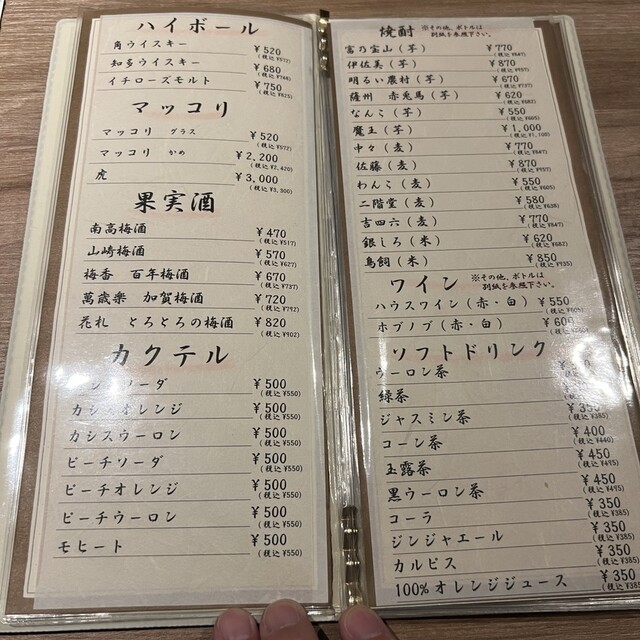 ハイボール
角ウイスキー ¥520
(税込 ¥572)
知多ウイスキー ¥680
(税込 ¥748)
イチローズモルト ¥750
(税込 ¥825)
マッコリ
マッコリ グラス ¥520
(税込 ¥572)
マッコリ かめ ¥2,200
(税込 ¥2,420)
虎 ¥3,000
(税込 ¥3,300)
果実酒
南高梅酒 ¥470
(税込 ¥517)
山崎梅酒 ¥570
(税込 ¥627)
梅香 百年梅酒 ¥670
(税込 ¥737)
萬歳樂 加賀梅酒 ¥720
(税込 ¥792)
花札 とろとろの梅酒 ¥820
(税込 ¥902)
カクテル
ソーダ ¥500
(税込 ¥550)
カシスオレンジ ¥500
(税込 ¥550)
カシスウーロン ¥500
(税込 ¥550)
ピーチソーダ ¥500
(税込 ¥550)
ピーチオレンジ ¥500
(税込 ¥550)
ピーチウーロン ¥500
(税込 ¥550)
モヒート ¥500
(税込 ¥550)
焼酎 ※その他、ボトルは
別紙を参照下さい。
富乃宝山(芋) ¥770
(税込 ¥847)
伊佐美(芋) ¥870
(税込 ¥957)
明るい農村(芋) ¥670
(税込 ¥737)
薩州 赤兎馬(芋) ¥620
(税込 ¥682)
なんこ(芋) ¥550
(税込 ¥605)
魔王(芋) ¥1,000
(税込 ¥1,100)
中々(麦) ¥770
(税込 ¥847)
佐藤(麦) ¥870
(税込 ¥957)
わんこ(麦) ¥550
(税込 ¥605)
二階堂(麦) ¥580
(税込 ¥638)
吉四六(麦) ¥770
(税込 ¥847)
銀しろ(米) ¥620
(税込 ¥682)
鳥飼(米) ¥850
(税込 ¥935)
ワイン ※その他、ボトルは
別紙を参照下さい。
ハウスワイン(赤・白) ¥550
(税込 ¥605)
ホブノブ(赤・白) ¥600
ソフトドリンク
ウーロン茶
緑茶
ジャスミン茶 ¥350
(税込 ¥385)
コーン茶 ¥400
(税込 ¥440)
玉露茶 ¥450
(税込 ¥495)
黒ウーロン茶 ¥450
(税込 ¥495)
コーラ ¥350
(税込 ¥385)
ジンジャエール ¥350
(税込 ¥385)
カルピス ¥350
(税込 ¥385)
100%オレンジジュース ¥350
(税込 ¥385)